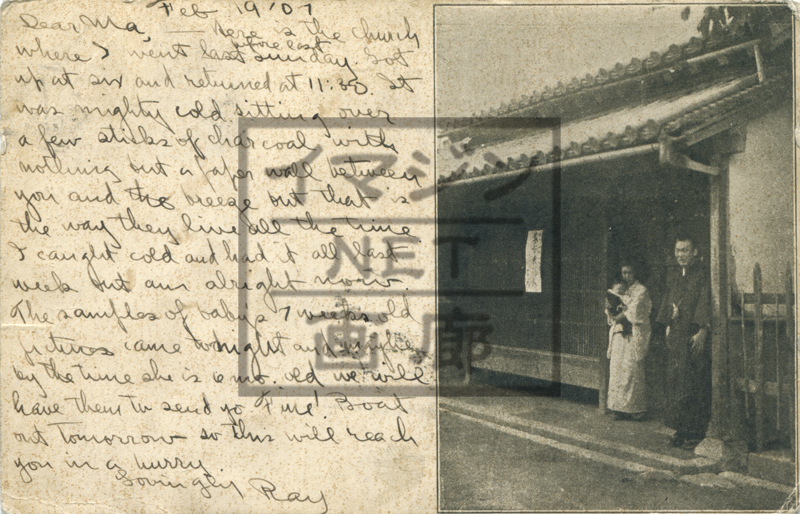 Feb 19/07
Dear Ma, — Here is the church
where I went last Sunday. Got
before last
up at six and returned at 11:30. It
was mighty cold sitting over
a few sticks of charcoal with
nothing but a paper wall between
you and the breeze but that is
the way they live all the time
I caught cold and had it all last
week but am alright now.
The samples of baby's 7 weeks old
pictures came tonight and maybe
by the time she is 6 mo. old we will
have them to send yo Fine! Boat
out tomorrow so this will reach
you in a hurry.
Lovingly Ray
イマジン
NET
画廊